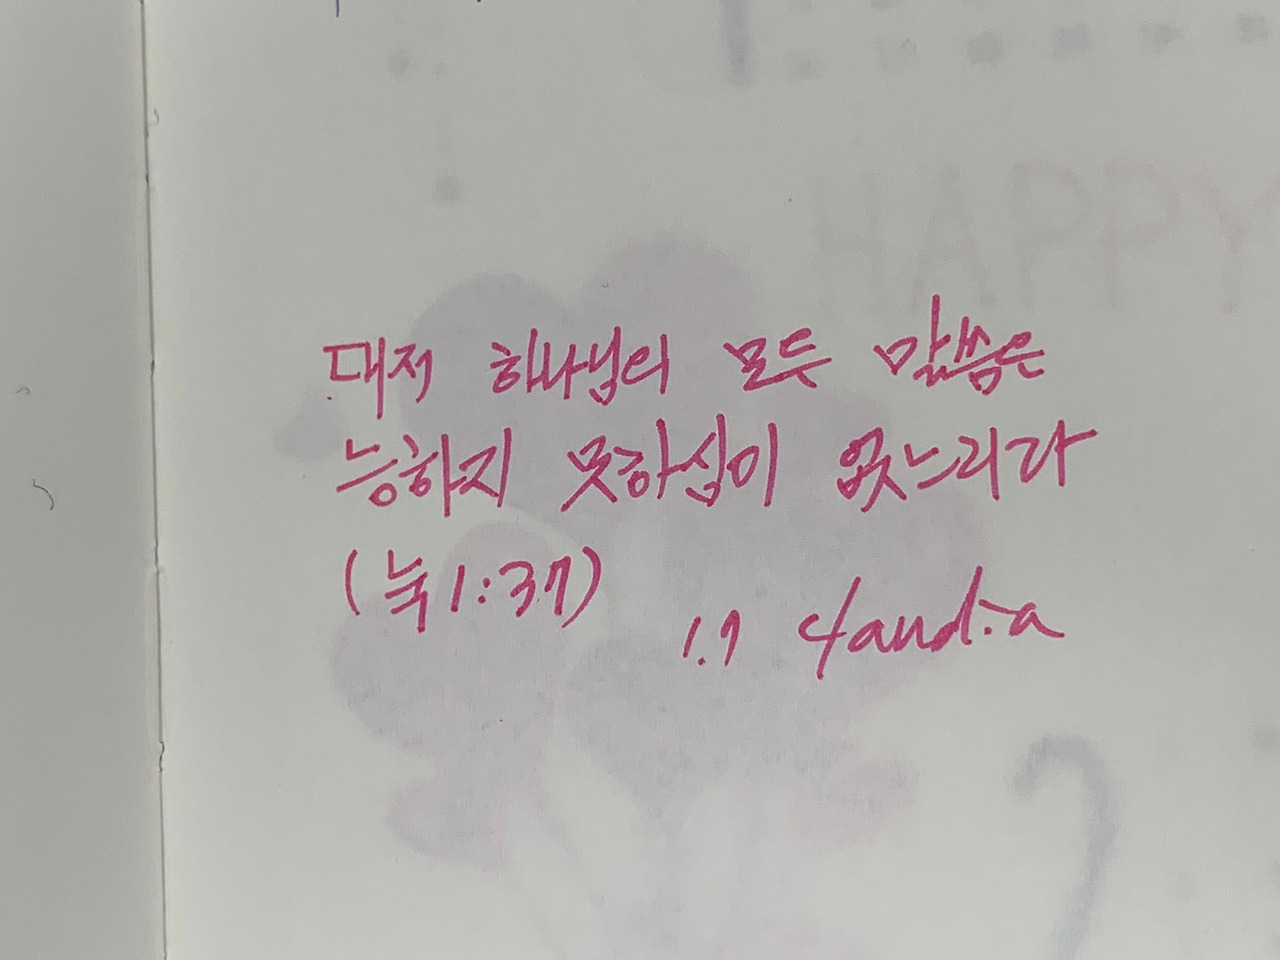 HAPPY
대저 하나님의 모든 말씀은
능하지 못하심이 없느니라
(눅1:37)
1.9 Claudia